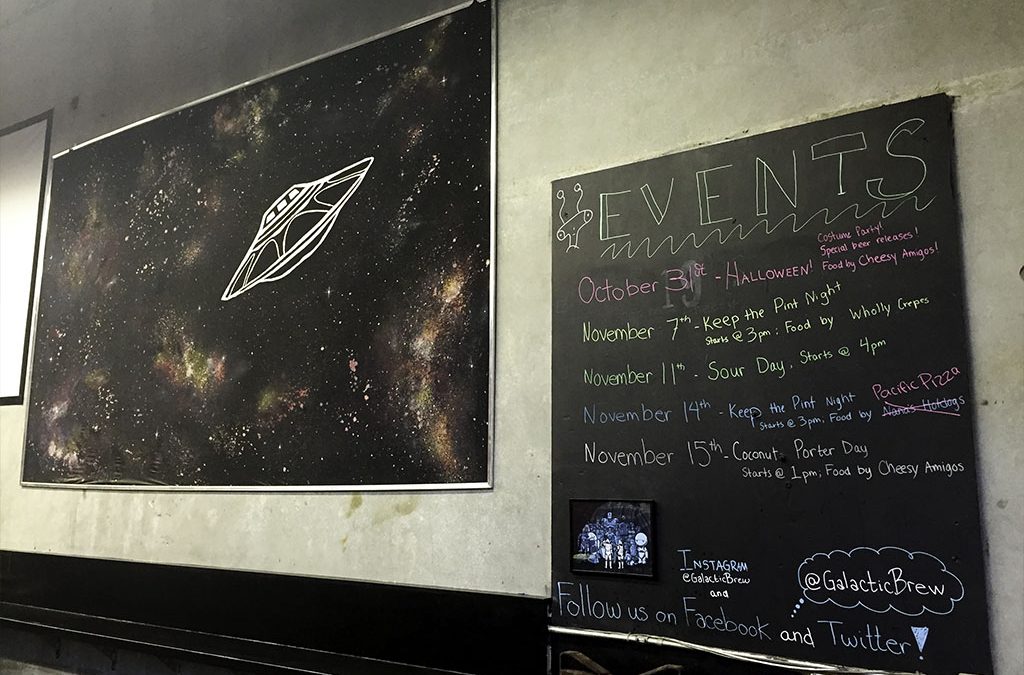 EVENTS
October 31st - HALLOWEEN!
Costume Party!
Special beer releases!
Food by Cheesy Amigos!
November 7th - Keep the Pint Night
Starts @ 3pm; Food by Wholly Crepes
November 11th - Sour Day, Starts @ 4pm
November 14th - Keep the Pint Night
Pacific Pizza
Starts @ 3pm, Food by Nana's Hotdogs
November 15th - Coconut Porter Day
Starts @ 1pm; Food by Cheesy Amigos
INSTAGRAM
@GalacticBrew
and
@GalacticBrew
Follow us on Facebook and Twitter!